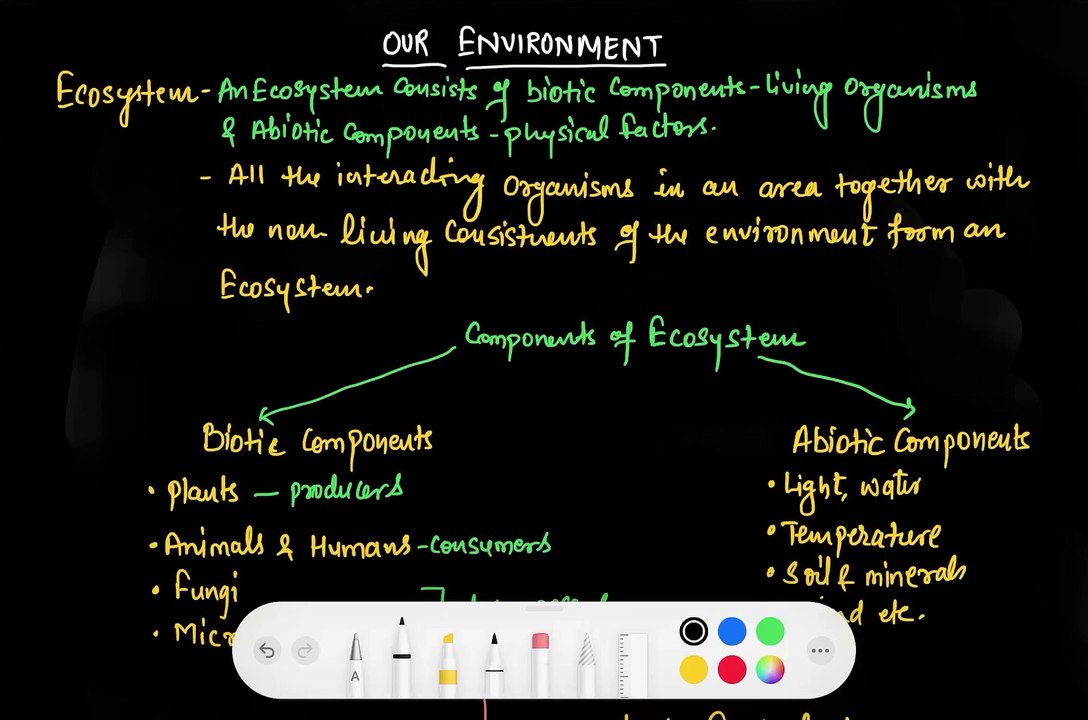 OUR ENVIRONMENT
Ecosystem - An Ecosystem Consists of biotic Components - living Organisms
& Abiotic Components - physical factors.
- All the interacting Organisms in an area together with
the non living Consistuents of the environment form an
Ecosystem.
Components of Ecosystem
Biotic Components
Abiotic Components
• Plants — producers
• Light, water
• Animals & Humans - Consumers
• Temperature
• Fungi
• Soil & minerals
etc.
A